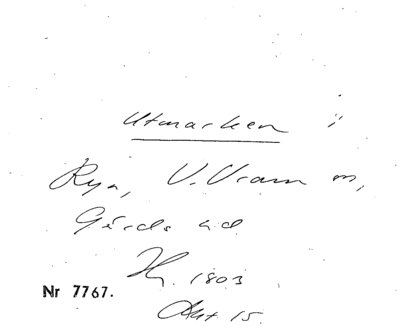 Utmarken i
Rya, V. Vram m,
Gärds hd.
1803
Nr 7767.
Akt 15.